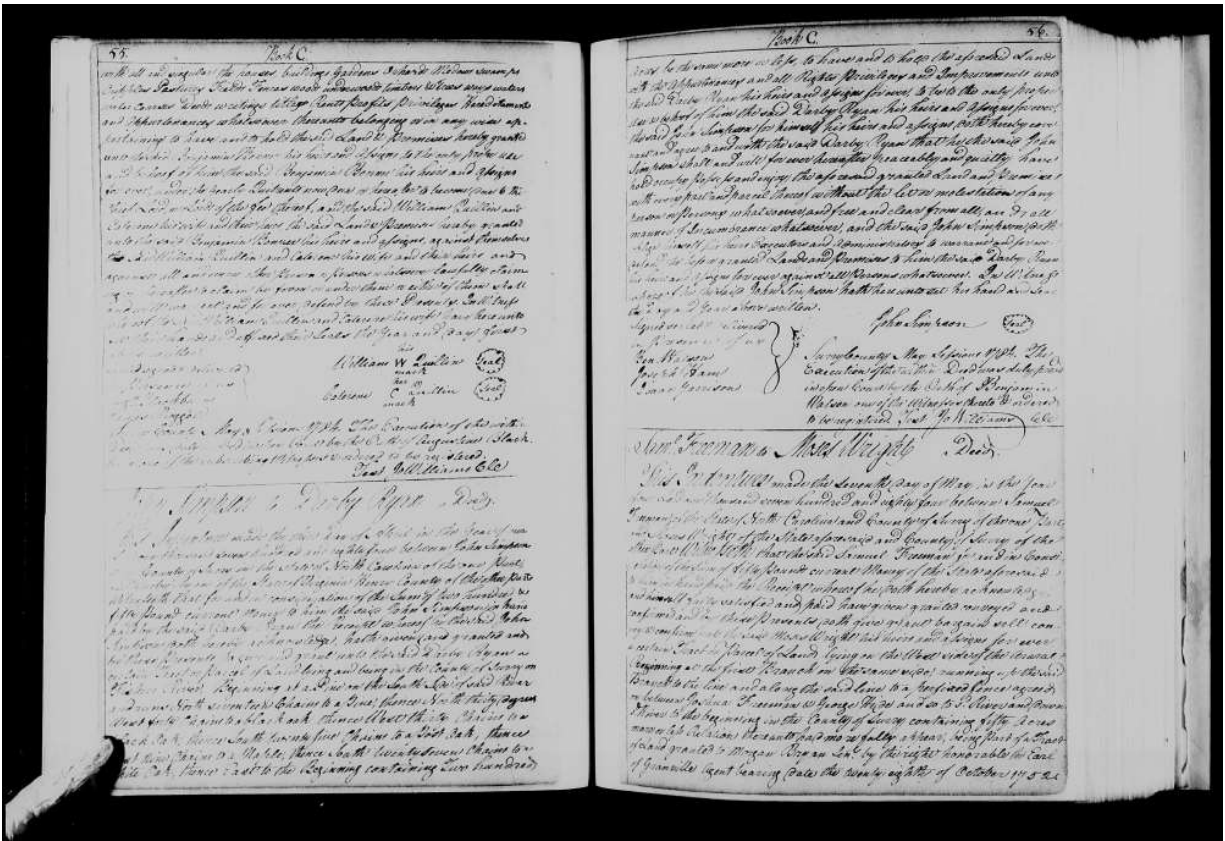 55. Book C.
with all and singular the houses, buildings Gardens Orchards Medows swamps
Pastures Feilds Fences woods underwoods timbers ways waters
water Courses Profits Privileges Hereditaments
and Appurtenances whatsoever thereunto belonging or in any wise ap-
pertaining to have and to hold the said Land & Premises hereby granted
unto the said Benjamin his heirs and assigns to the only proper use
and behoof of him the said Benjamin his heirs and assigns
for ever, under the Yearly now due or hereafter to become due to the
Lord or Lords of the fee thereof, and the said William Quillin and
his wife and their heirs the said Land & Premises hereby granted
unto the said Benjamin his heirs and assigns, against themselves
the said William Quillin and his wife and their heirs and
against all and every other Person or persons whatsoever lawfully claim-
ing or hereafter to claim by from or under them or either of them shall
and will warrant and for ever defend by these Presents. In Witness
whereof the said William Quillin and his wife have hereunto
set their hands and affixed their Seals the Year and day first
above written
his
William W Quillin Seal
mark
her
C Quillin Seal
mark
May Session 1784. The Execution of the within
Deed was proved by the Oath of Augustine Black-
one of the subscribing Witnesses & ordered to be registered.
Test Jo Williams CC
Simpson to Darby Ryan Deed.
This Indenture made the day of April in the Year of our
Lord one thousand seven hundred and eighty four between John Simpson
of the County of Surry in the State of North Carolina of the one Part,
and Darby Ryan of the State of Virginia Henry County of the other Part
Witnesseth that for and in consideration of the Sum of two hundred &
fifty Pound current Money to him the said John Simpson in hand
paid by the said Darby Ryan the receipt whereof is the said John
Simpson doth hereby acknowledge, hath given, and granted and
by these Presents grant unto the said Darby Ryan a
certain Tract or Parcel of Land lying and being in the County of Surry on
River Beginning at a Pine on the South Side of said River
and runs North seventeen Chains to a Pine, thence North thirty degrees
West forty Chains to a black oak thence West thirty Chains to a
black Oak, thence South twenty four Chains to a Post Oak, thence
Chains to a Maple, thence South twenty seven Chains to a
White Oak, thence East to the Beginning containing Two hundred
Book C. 56.
Acres be the same more or less, to have and to hold the aforesaid Lands
with the Appurtenances and all Rights Privileges and Improvements unto
the said Darby Ryan his heirs and assigns for ever, to be to the only proper
use & behoof of him the said Darby Ryan his heirs and assigns for ever,
the said John Simpson for himself his heirs and assigns, doth hereby cove-
nant and agree to and with the said Darby Ryan that he the said John
Simpson shall and will for ever hereafter peaceably and quietly have
hold occupy possess and enjoy the aforesaid granted Land and Premises
with every part and parcel thereof without the let or molestation of any
Person or Persons whatsoever, and free and clear from all, and all
manner of Incumbrance whatsoever, and the said John Simpson doth
oblige himself his heirs Executors and Administrators to warrant and for ever
defend the before granted Lands and Premises to him the said Darby Ryan
his heirs and assigns for ever against all Persons whatsoever. In Witness
whereof the said John Simpson hath hereunto set his hand and seal
the day and Year above written.
Signed sealed & delivered
in presence of us
Ben Watson
Joseph Ham
Isaac Garrison
John Simpson Seal
Surry County May Sessions 1784. The
Execution of the within Deed was duly proved
in open Court by the Oath of Benjamin
Watson one of the Witnesses thereto & ordered
to be registered Test Jo Williams CC
Saml. Freeman to Moses Wright Deed.
This Indenture made the seventh day of May in the Year
of our Lord one thousand seven hundred and eighty four between Samuel
Freeman of the State of North Carolina and County of Surry of the one Part
and Moses Wright of the State aforesaid and County of Surry of the
other Part Witnesseth that the said Samuel Freeman for and in Consi-
deration of the Sum of fifty Pounds current Money of the State aforesaid
to him in hand paid the Receipt whereof he doth hereby acknowledge
and himself fully satisfied and paid have given granted conveyed and
confirmed and by these Presents doth give grant bargain sell con-
vey & confirm unto the said Moses Wright his heirs and assigns for ever
a certain Tract or Parcel of Land lying on the West side of the
Beginning at the first Branch on the same side, running up the said
Branch to the line and along the said line to a fence agreed
on between Joshua Freeman & George Hyde and so to River and down
River to the beginning in the County of Surry containing fifty Acres
more or less Relation thereunto had may fully appear, being Part of a Tract
of Land granted to Morgan Bryan Senr. by the right honorable the Earl
of Granville Agent bearing date the twenty eighth of October 1752